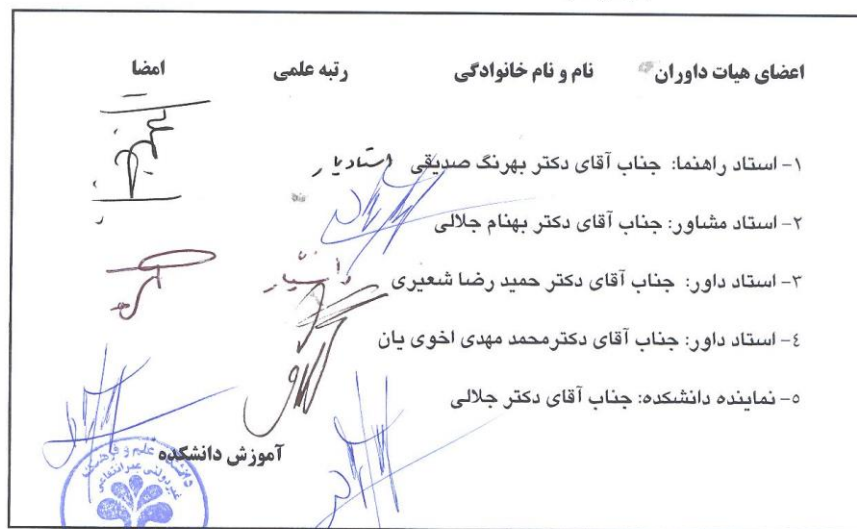 اعضای هیات داوران نام و نام خانوادگی رتبه علمی امضا
۱- استاد راهنما: جناب آقای دکتر بهرنگ صدیقی استادیار
۲- استاد مشاور: جناب آقای دکتر بهنام جلالی
۳- استاد داور: جناب آقای دکتر حمید رضا شعیری دانشیار
٤- استاد داور: جناب آقای دکترمحمد مهدی اخوی یان
٥- نماینده دانشکده: جناب آقای دکتر جلالی
آموزش دانشکده
دانشگاه علم و فرهنگ
غیردولتی غیرانتفاعی